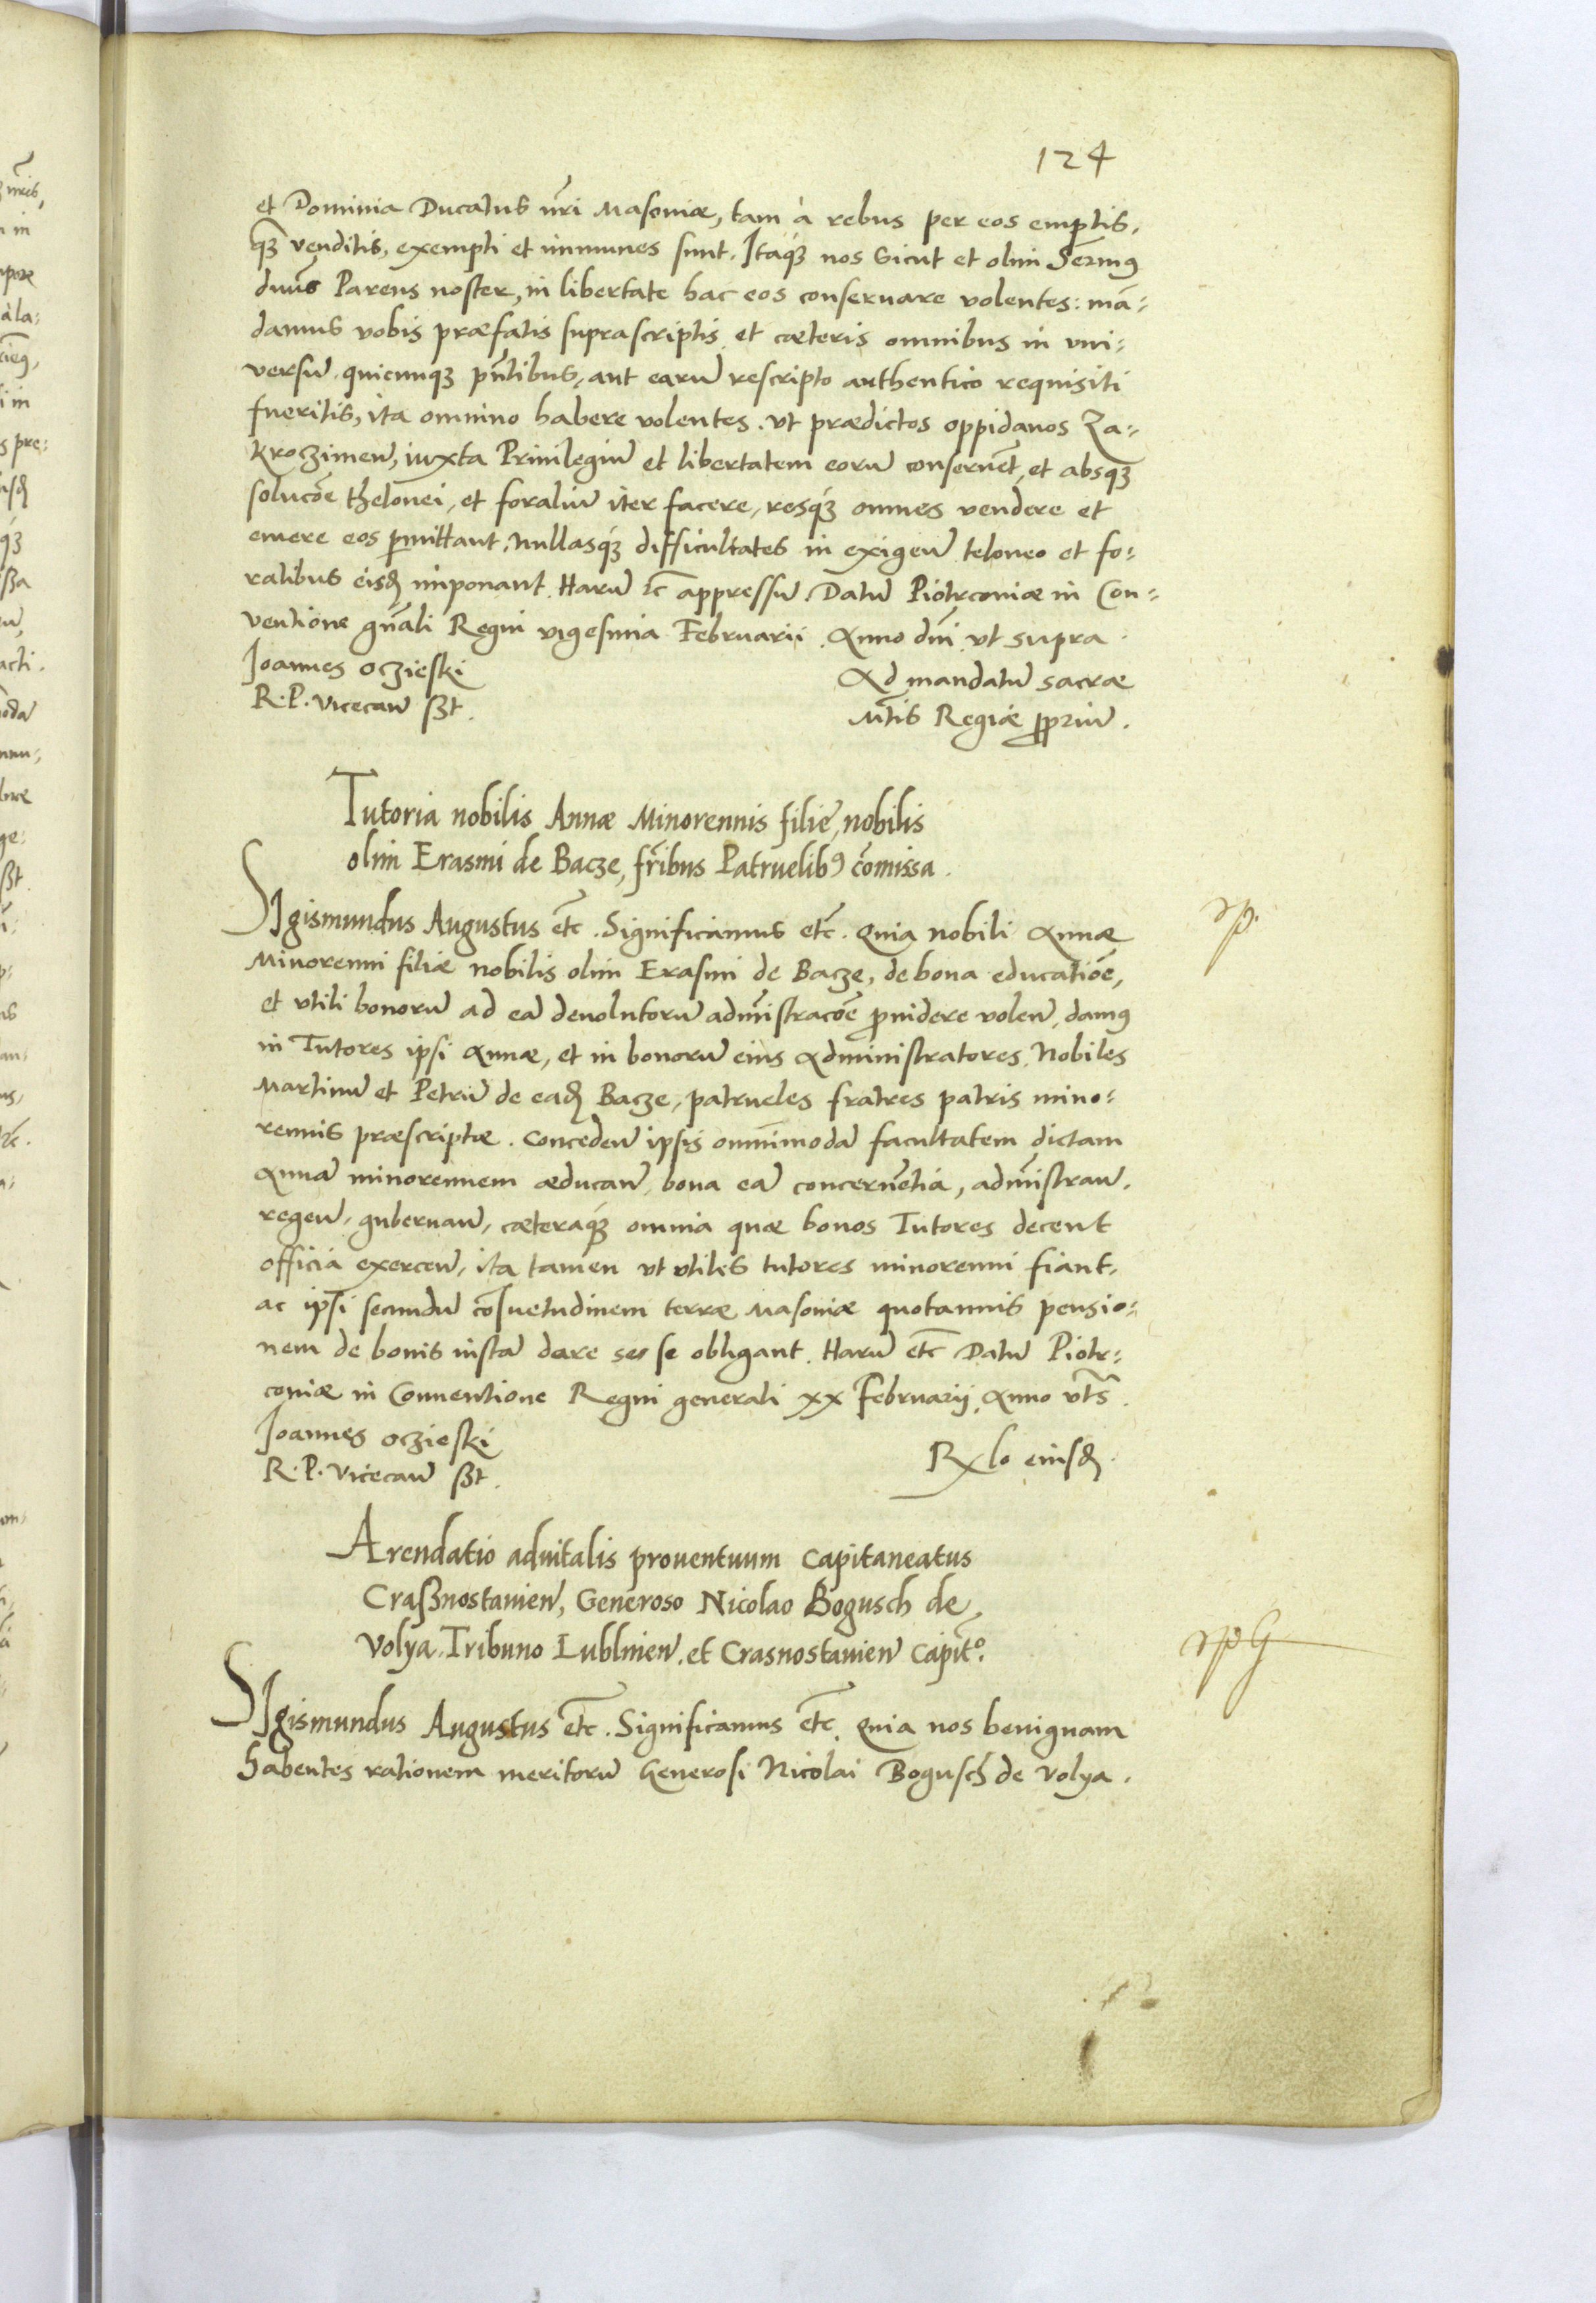 124
et Dominia Ducatus nr̃i Masoniæ, tam à rebus per eos emptis,
q̃ʒ venditis, exempti et immunes sunt. Itaqʒ nos sicut et olim Serm̃9
dnũs Parens noster, in libertate hac eos conseruare volentes: mã-
damus vobis præfatis suprascriptis et cæteris omnibus in vni-
versũ quicunqʒ pñtibus, aut earũ rescripto authentico requisiti
fueritis, ita omnino habere volentes. vt prædictos oppidanos Za-
kroczimeñ, iuxta Priuilegiũ et libertatem eorũ conseruẽt, et absqʒ
solucõe thelonei, et foraliũ iter facere, resqʒ omnes vendere et
emere eos pmittant, Nullasqʒ difficultates in exigeñ teloneo et fo-
ralibus eisd imponant. Harũ etc̃ appressũ. Datũ Piotrconiæ in Con-
ventione gñali Regni vigesima Februarii. Anno dñi vt supra.
Ioannes Oczieski
R. P. Vicecañ sßt.
Ad mandatũ sacræ
Mt̃is Regiæ ppriũ.
Tutoria nobilis Annæ Minorennis filie, nobilis
olim Erasmi de Bacze, fr̃ibus Patruelib9 cõmissa.
Sigismundus Augustus etc̃. Significamus etc̃. Quia nobili Annæ
Minorenni filiæ nobilis olim Erasmi de Bacze, de bona educatiõe,
et vtili bonorũ ad eã deuolutorũ admĩstracõe prouidere voleñ, dam9
in Tutores ipsi Annæ, et in bonorũ eius Administratores, Nobiles
Martinũ et Petrũ de ead Bacze, patrueles fratres patris mino-
rennis præscriptæ. Concedeñ ipsis omnimodã facultatem dictam
Annã minorennem æducañ, bona eã concernẽtia, admĩstrañ,
regeñ, gubernañ, cæteraqʒ omnia quæ bonos Tutores decent
officia exerceñ, ita tamen vt vtiles tutores minorenni fiant,
ac ipsi secundũ cõsuetudinem terræ Masoniæ quotannis pensio-
nem de bonis iustã dare se obligant. Harũ etc̃ Datũ Piotr-
coniæ in Conuentione Regni generali xx Februarij, Anno vts̃.
Ioannes Oczieski
R. P. Vicecañ sßt.
Rlo eiusd.
Arendatio aduitalis prouentuum Capitaneatus
Craßnostauieñ, Generoso Nicolao Bogusch de
Volya. Tribuno Lublineñ. et Crasnostauieñ Capit̃o.
Sigismundus Augustus etc̃. Significamus etc̃. Quia nos benignam
habentes rationem meritorũ Generosi Nicolai Bogusch de Volya.